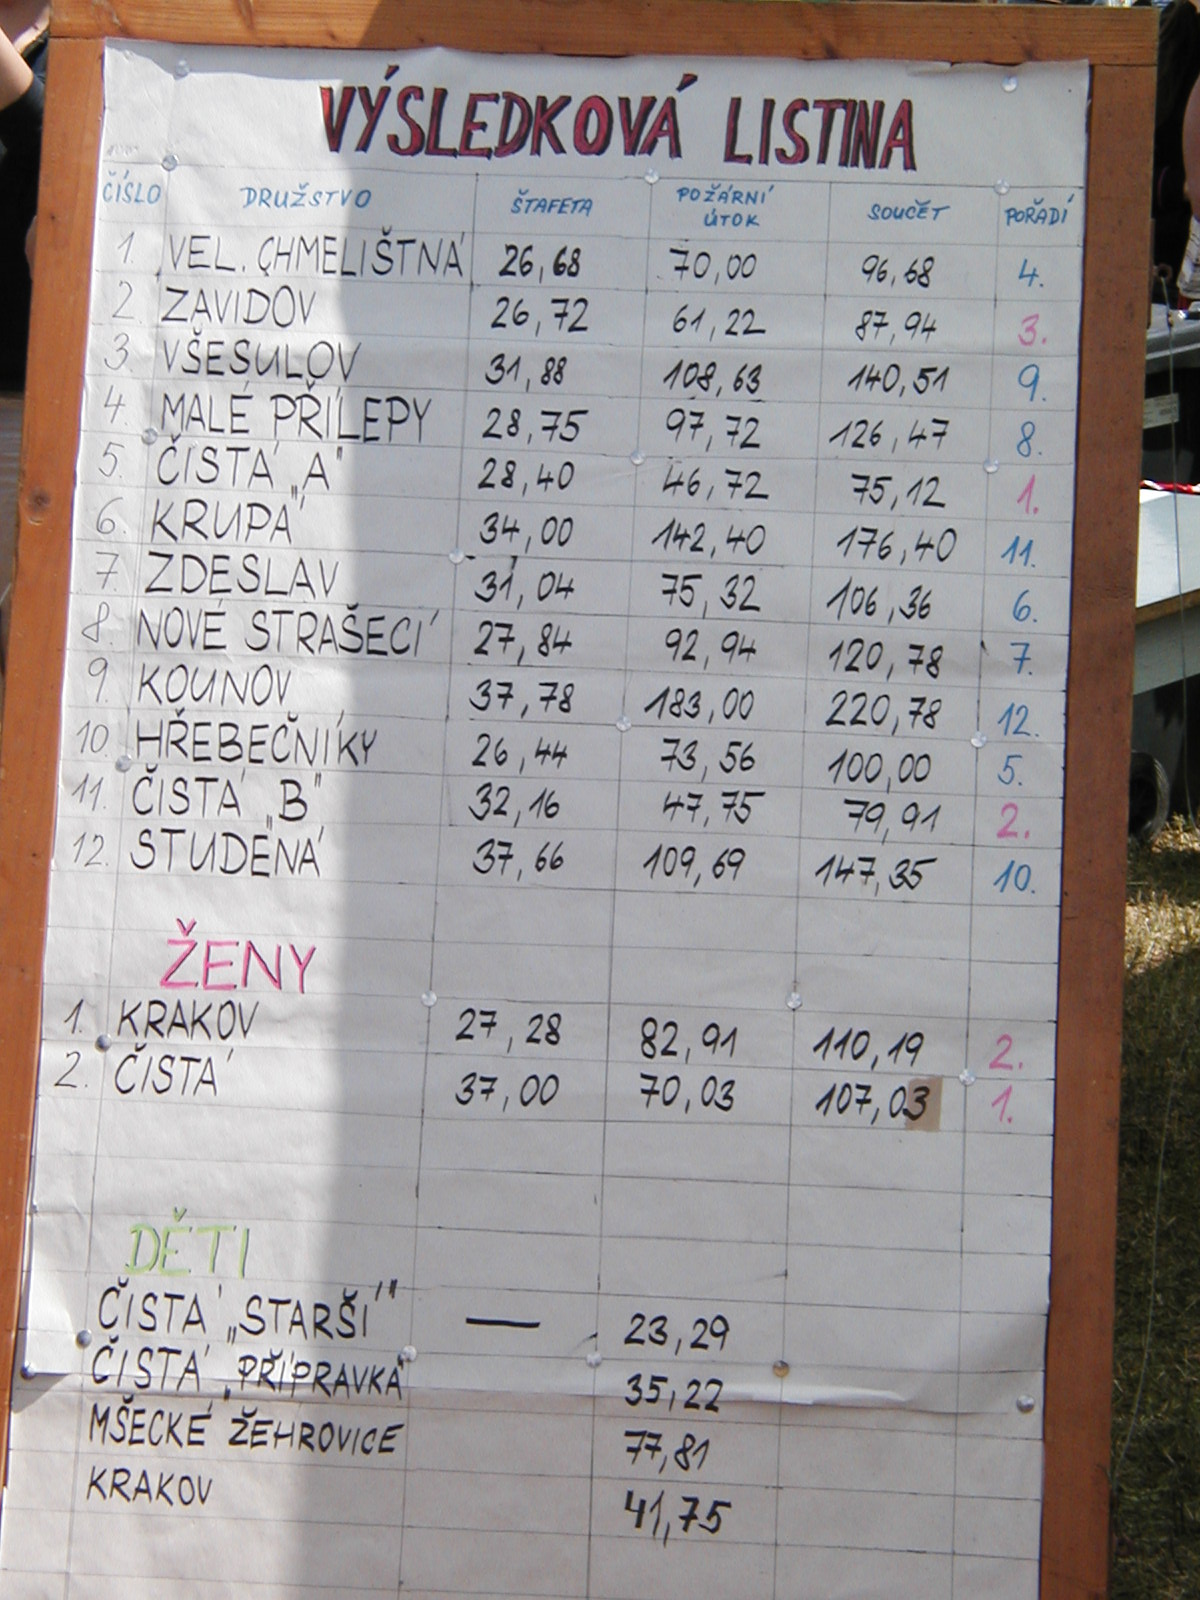 VÝSLEDKOVÁ LISTINA
ČÍSLO DRUŽSTVO ŠTAFETA POŽÁRNÍ ÚTOK SOUČET POŘADÍ
1. VEL. CHMELIŠTNÁ 26,68 70,00 96,68 4.
2. ZAVIDOV 26,72 61,22 87,94 3.
3. VŠESULOV 31,88 108,63 140,51 9.
4. MALÉ PŘÍLEPY 28,75 97,72 126,47 8.
5. ČISTÁ „A" 28,40 46,72 75,12 1.
6. KRUPÁ 34,00 142,40 176,40 11.
7. ZDESLAV 31,04 75,32 106,36 6.
8. NOVÉ STRAŠECÍ 27,84 92,94 120,78 7.
9. KOUNOV 37,78 183,00 220,78 12.
10. HŘEBEČNÍKY 26,44 73,56 100,00 5.
11. ČISTÁ „B" 32,16 47,75 79,91 2.
12. STUDENÁ 37,66 109,69 147,35 10.
ŽENY
1. KRAKOV 27,28 82,91 110,19 2.
2. ČISTÁ 37,00 70,03 107,03 1.
DĚTI
ČISTÁ „STARŠÍ" — 23,29
ČISTÁ „PŘÍPRAVKA" 35,22
MŠECKÉ ŽEHROVICE 77,81
KRAKOV 41,75